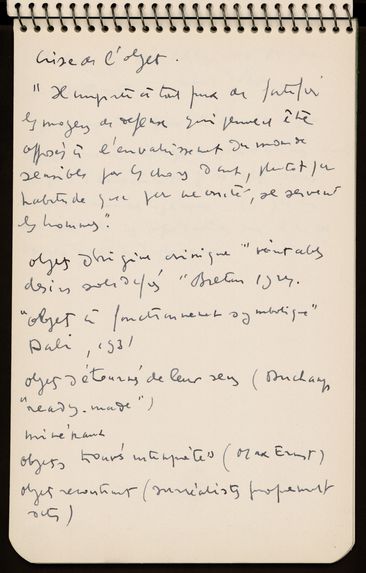 Crise de l'objet.
" Il importe à tout prix de fortifier
les moyens de défense qui peuvent être
opposés à l'envahissement du monde
sensible par les choses dont, plutôt par
habitude que par nécessité, se servent
les hommes".
objets d'origine onirique "véritables
désirs solidifiés" Breton 1924.
"objet à fonctionnement symbolique"
Dali, 1931
objets détournés de leur sens (Duchamp
"ready-made")
minéraux
objets trouvés interprétés (Max Ernst)
objets (surréalistes proprement
dits)